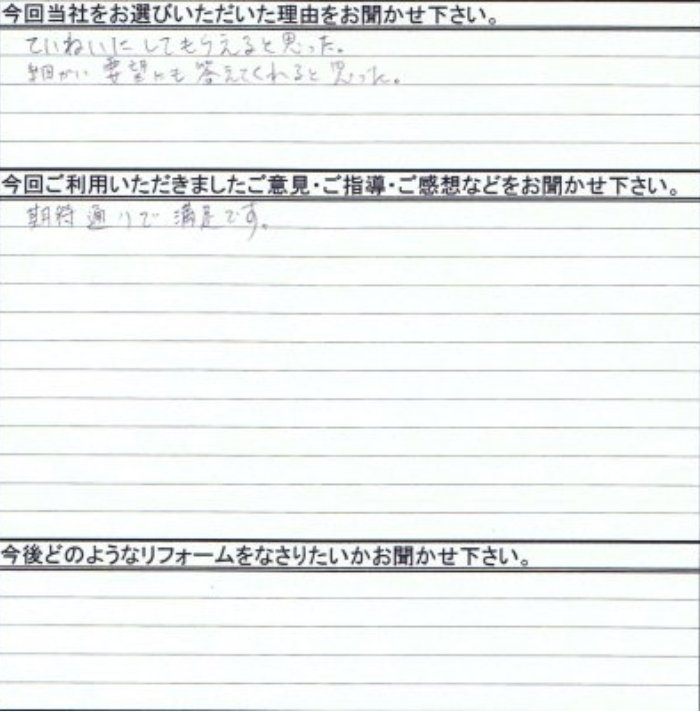 今回当社をお選びいただいた理由をお聞かせ下さい。
ていねいにしてもらえると思った。
細かい要望にも答えてくれると思った。
今回ご利用いただきましたご意見・ご指導・ご感想などをお聞かせ下さい。
期待通りで満足です。
今後どのようなリフォームをなさりたいかお聞かせ下さい。